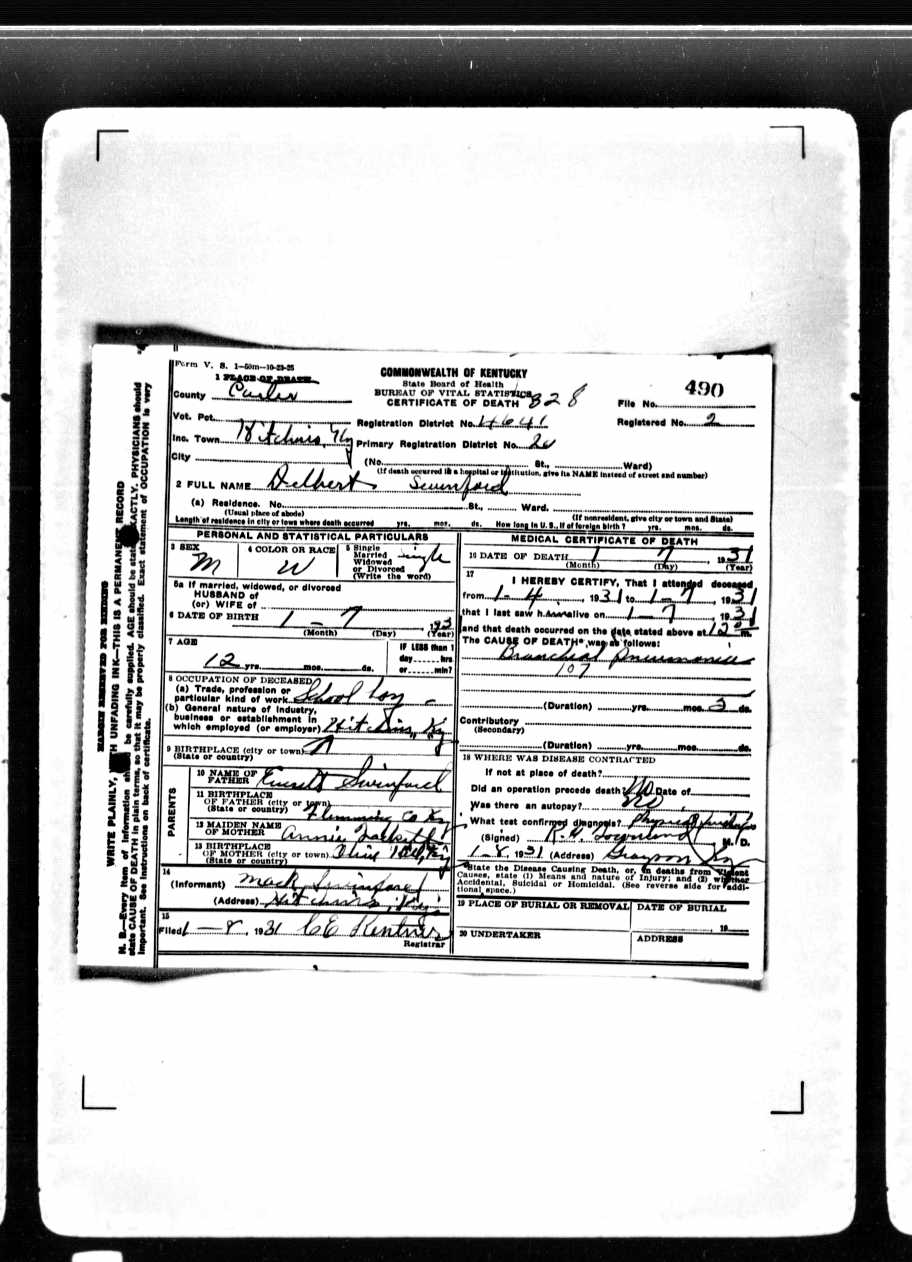 Form V. S. 1—50m—10-23-25
1 PLACE OF DEATH
COMMONWEALTH OF KENTUCKY
State Board of Health
BUREAU OF VITAL STATISTICS
CERTIFICATE OF DEATH 828
File No. 490
County Carter
Vot. Pct. Registration District No. 14641 Registered No. 2
Inc. Town Hitchins, Ky Primary Registration District No.
City (No. St., Ward)
(If death occurred in a hospital or institution, give its NAME instead of street and number)
2 FULL NAME Delbert Swinford
(a) Residence. No. St., Ward.
(Usual place of abode) (If nonresident, give city or town and State)
Length of residence in city or town where death occurred yrs. mos. ds. How long in U. S., if of foreign birth? yrs. mos. ds.
PERSONAL AND STATISTICAL PARTICULARS
3 SEX M
4 COLOR OR RACE W
5 Single Married Widowed or Divorced (Write the word) single
5a If married, widowed, or divorced
HUSBAND of
(or) WIFE of
6 DATE OF BIRTH 1 — 7, 193
(Month) (Day) (Year)
7 AGE 12 yrs. mos. ds.
IF LESS than 1 day hrs. or min?
8 OCCUPATION OF DECEASED
(a) Trade, profession or particular kind of work School boy
(b) General nature of industry, business or establishment in which employed (or employer) Hitchins, Ky
9 BIRTHPLACE (city or town)
(State or country)
PARENTS
10 NAME OF FATHER Swinford
11 BIRTHPLACE OF FATHER (city or town)
(State or country) Flemming Co Ky
12 MAIDEN NAME OF MOTHER Annie
13 BIRTHPLACE OF MOTHER (city or town) Olive Hill, Ky
(State or country)
14 (Informant) Mack Swinford
(Address) Hitchins, Ky.
15 Filed 1—8, 1931 CE
Registrar
MEDICAL CERTIFICATE OF DEATH
16 DATE OF DEATH 1 7, 1931
(Month) (Day) (Year)
17 I HEREBY CERTIFY, That I attended deceased
from 1-4, 1931 to 1-7, 1931
that I last saw h alive on 1-7, 1931
and that death occurred on the date stated above at 12 m.
The CAUSE OF DEATH* was as follows:
Broncheal Pneumonia
107
(Duration) yrs. mos. 3 ds.
Contributory
(Secondary)
(Duration) yrs. mos. ds.
18 WHERE WAS DISEASE CONTRACTED
If not at place of death?
Did an operation precede death? No Date of
Was there an autopsy? No
What test confirmed diagnosis? Physical
(Signed) R. H. Townsend M. D.
1-8, 1931 (Address) Grayson Ky
*State the Disease Causing Death, or, in deaths from Violent Causes, state (1) Means and nature of Injury; and (2) whether Accidental, Suicidal or Homicidal. (See reverse side for additional space.)
19 PLACE OF BURIAL OR REMOVAL DATE OF BURIAL
19
20 UNDERTAKER ADDRESS
MARGIN RESERVED FOR BINDING
WRITE PLAINLY, WITH UNFADING INK—THIS IS A PERMANENT RECORD
N. B.—Every item of information should be carefully supplied. AGE should be stated EXACTLY. PHYSICIANS should
state CAUSE OF DEATH in plain terms, so that it may be properly classified. Exact statement of OCCUPATION is very
important. See instructions on back of certificate.